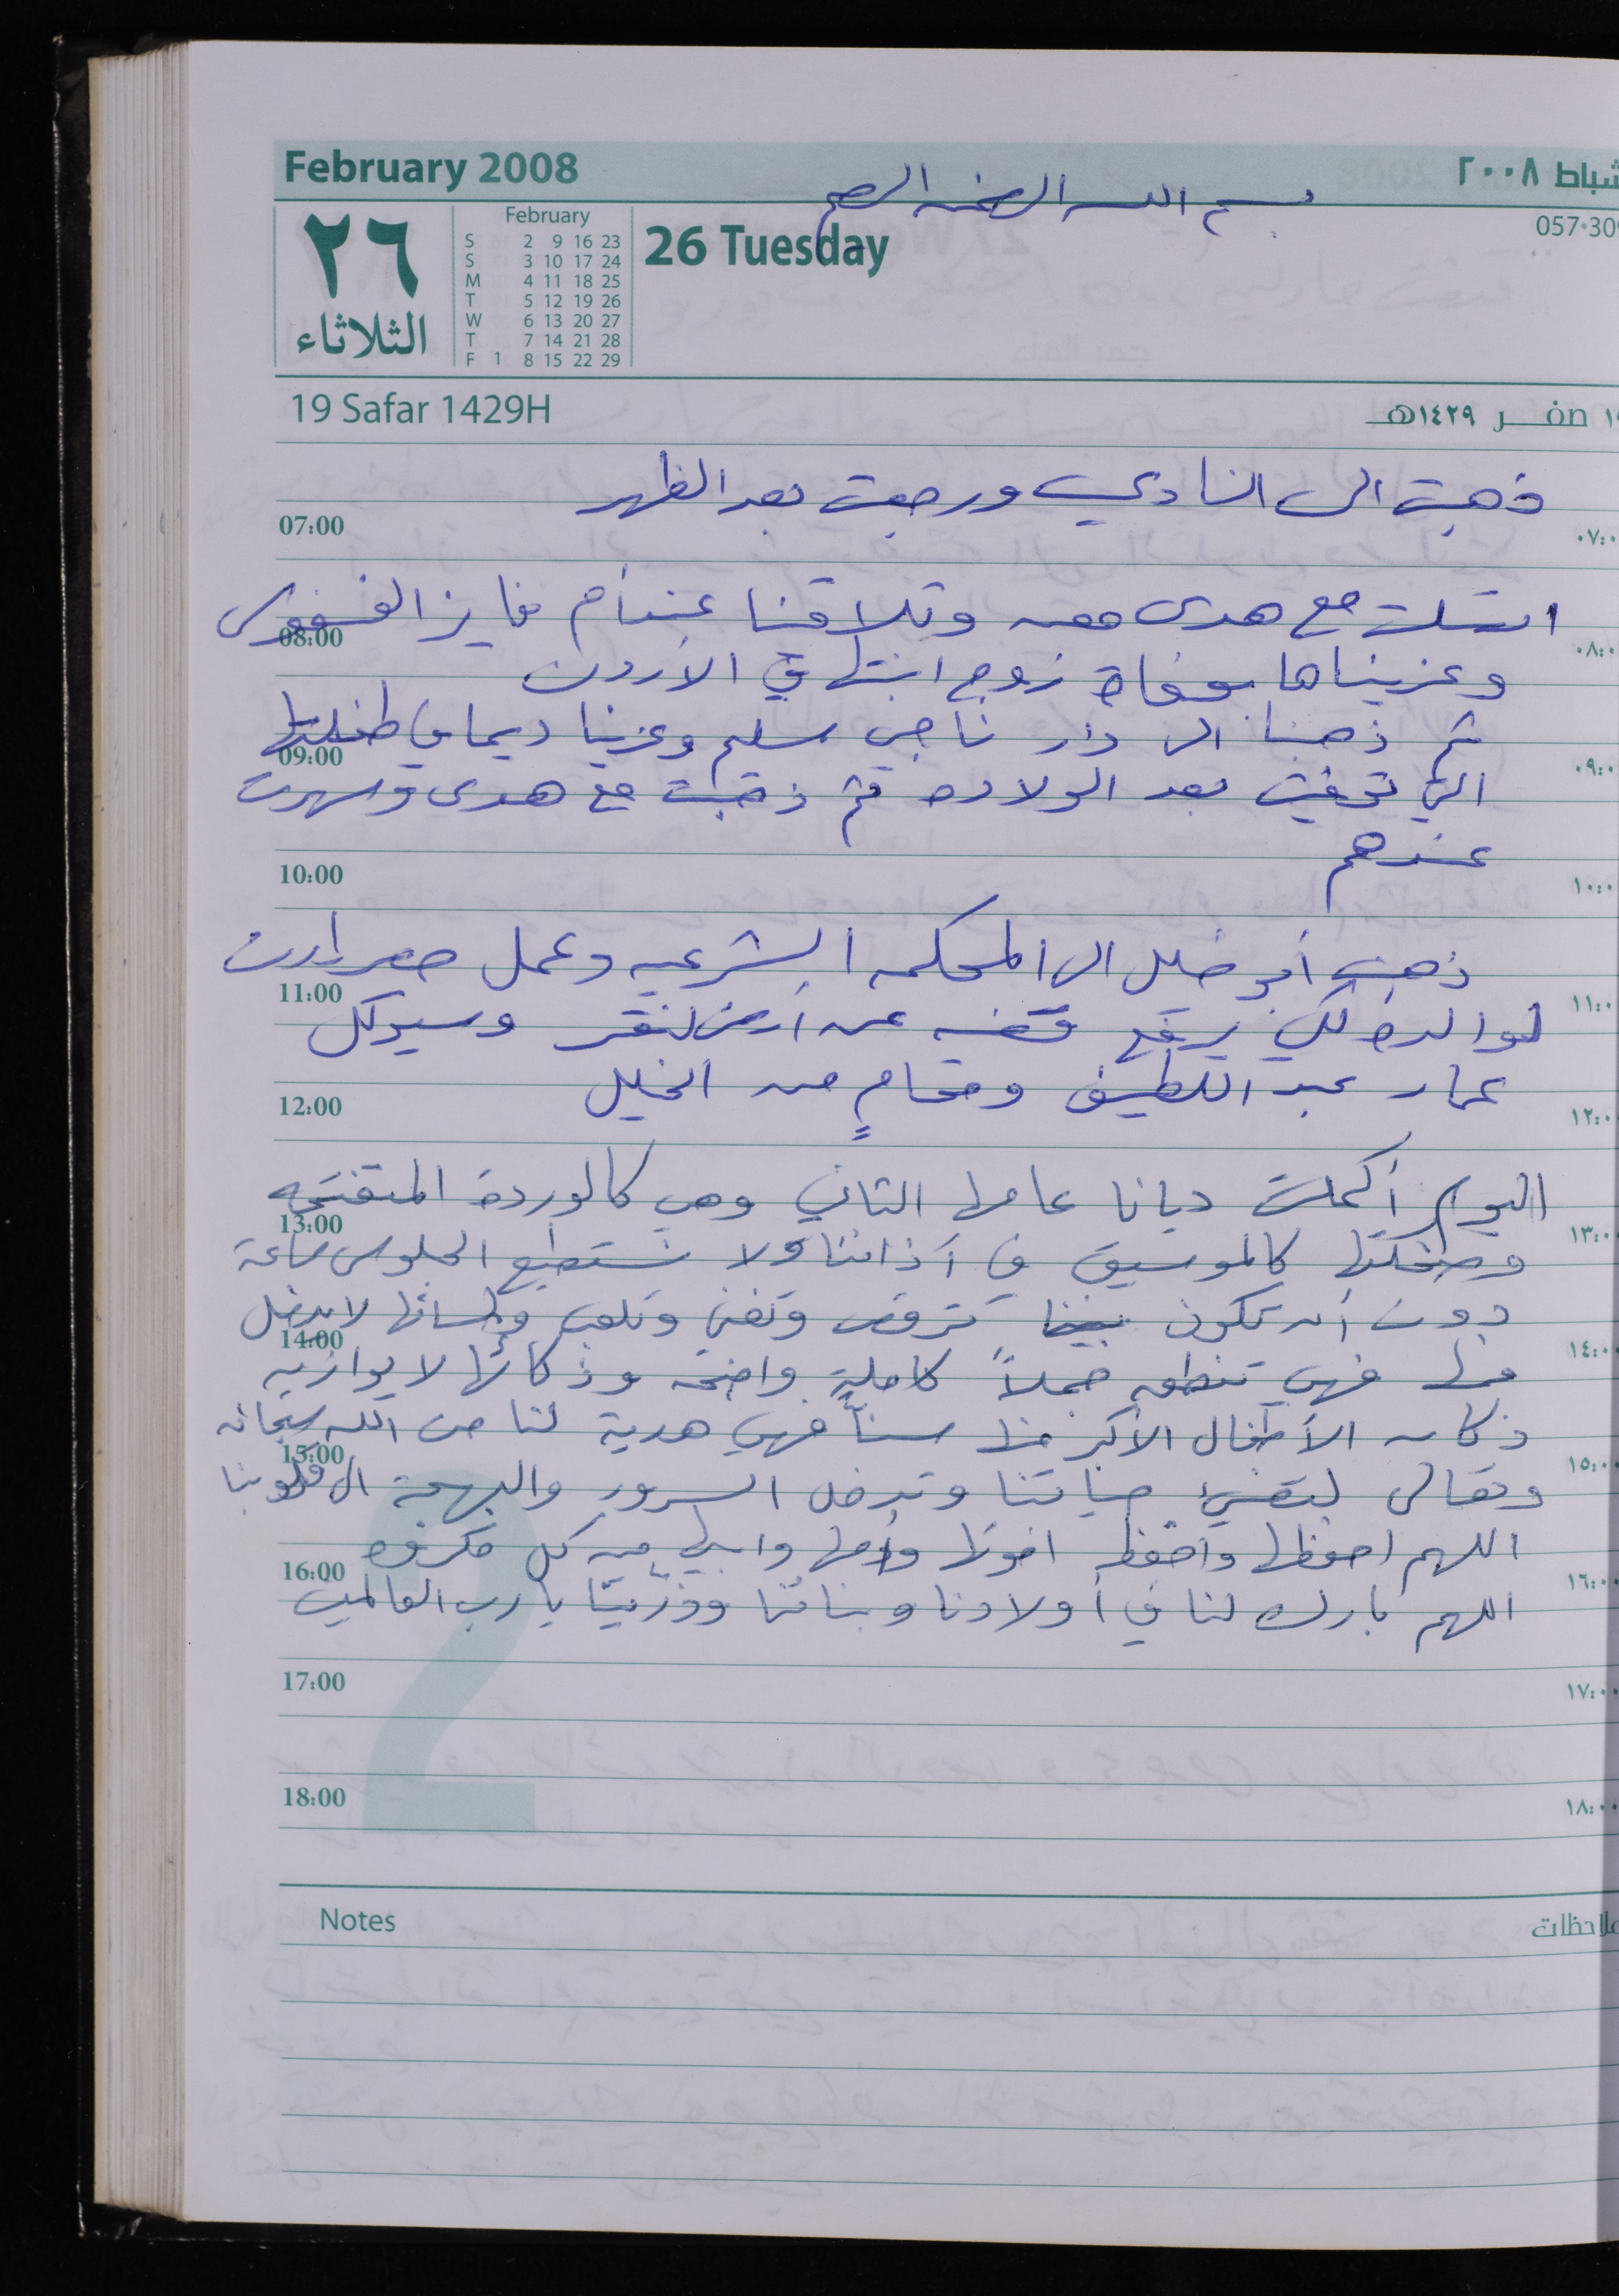 February 2008
شباط ٢٠٠٨
بسم الله الرحمن الرحيم
٢٦
الثلاثاء
February
S 2 9 16 23
S 3 10 17 24
M 4 11 18 25
T 5 12 19 26
W 6 13 20 27
T 7 14 21 28
F 1 8 15 22 29
26 Tuesday
057·30
19 Safar 1429H
صفر ١٤٢٩هـ
ذهبت الى النادي ورجعت بعد الظهر
07:00
مع هدى وتلاقينا عند أم فايز
08:00
وعزيناها بوفاة زوج ابنتها في الأردن
ثم ذهبنا الى دار ناجي سليم وعزينا ديما في طفلتها
09:00
التي توفيت بعد الولاده ثم ذهبت مع هدى وسهرت
عندهم
10:00
ذهب أبو خليل الى المحكمه الشرعيه وعمل حصر إرث
11:00
لوالده لكي يرفع قضيه عن أرض وسيوكل
عمار عبد اللطيف ومحامٍ من الخليل
12:00
اليوم أكملت ديانا عامها الثاني وهي كالوردة المتفتحه
13:00
وضحكتها كالموسيقى في آذاننا ولا نستطيع الجلوس ساعة
دون أن تكون بيننا ترقص وتغني وتلعب ولسانها لا يدخل
14:00
فمها فهي تنطق جملاً كاملة واضحه وذكائها لا يوازيه
ذكاء الأطفال الأكبر منها سناً فهي هدية لنا من الله سبحانه
15:00
وتعالى لتضيء حياتنا وتدخل السرور والبهجة الى قلوبنا
اللهم احفظها واحفظ اخوتها وأمها وابيها من كل مكروه
16:00
اللهم بارك لنا في أولادنا وبناتنا وذريتنا يا رب العالمين
17:00
18:00
2
Notes
ملاحظات